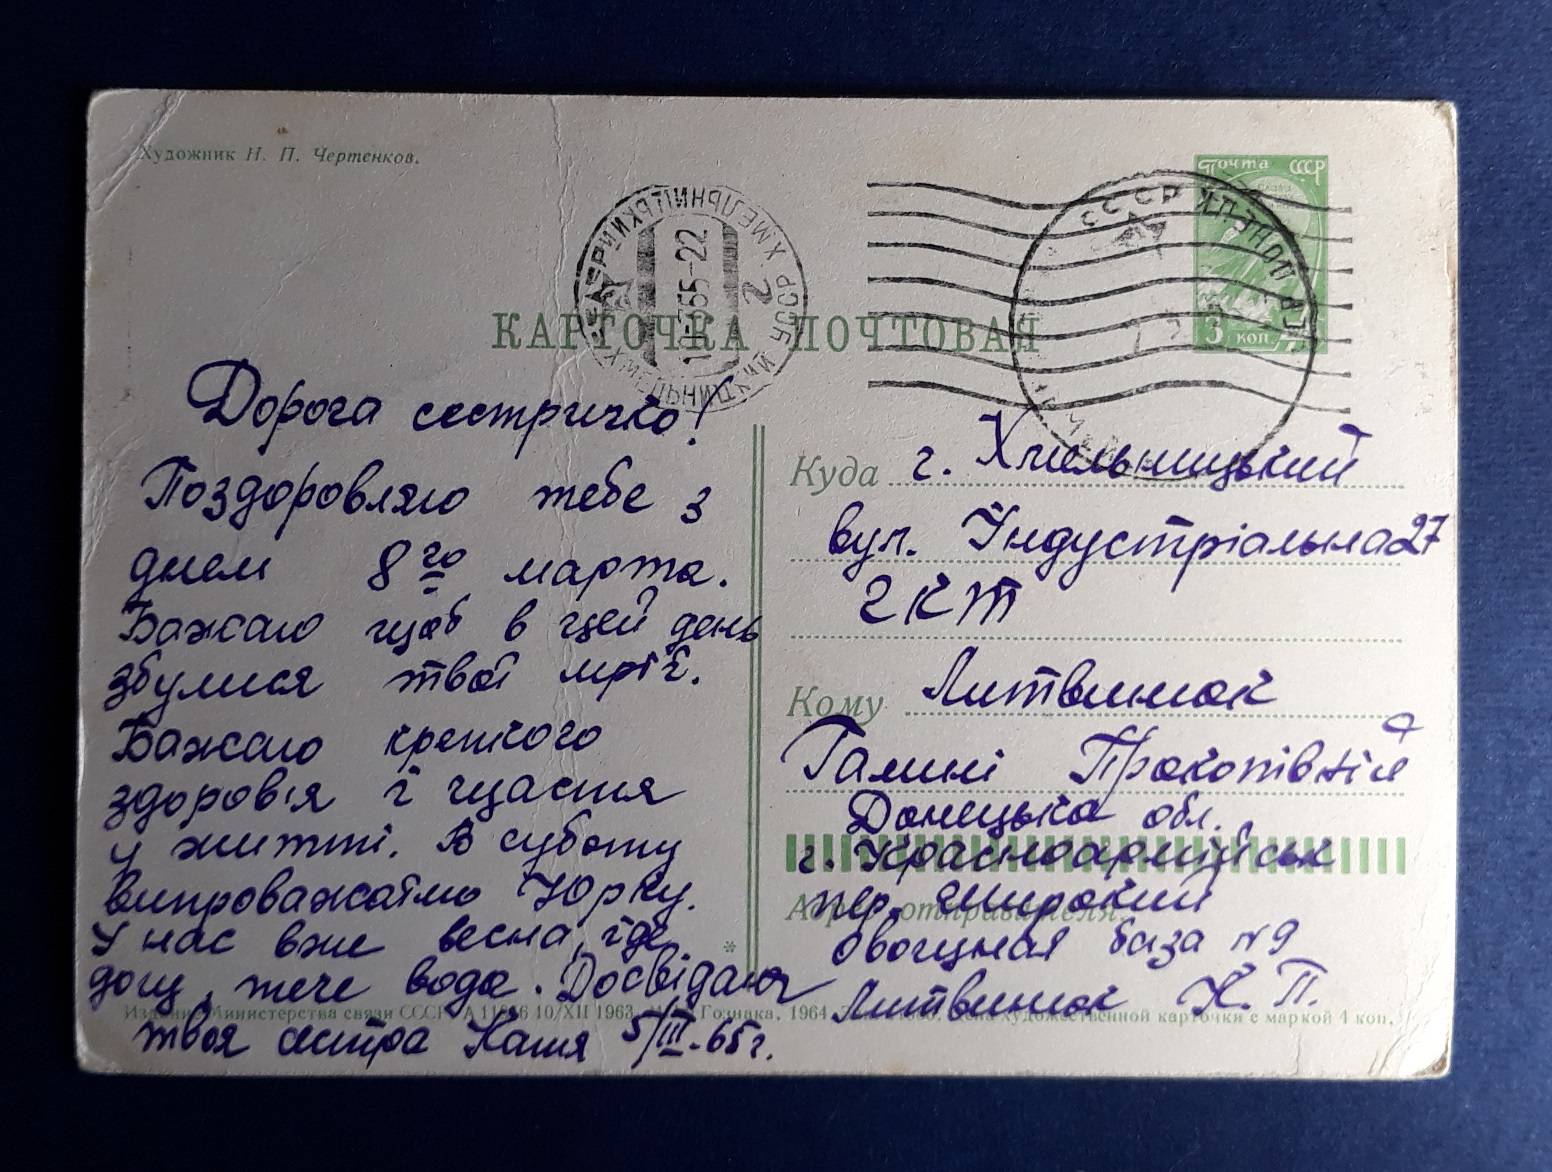 Художник Н. П. Чертенков.
Почта СССР
3 коп
СССР
ХМЕЛЬНИЦ
2
65-22
КАРТОЧКА ПОЧТОВАЯ
Дорога сестричко!
Поздоровляю тебе з
днем 8го марта.
Бажаю щоб в цей день
збулися твої мрії.
Бажаю крепкого
здоров'я і щастя
у житті. В суботу
випроважаїмо Юрку.
У нас вже весна, где
дощ, тече вода. Досвідання
твоя сестра Катя 5/III-65г.
Куда г. Хмельницький
вул. Індустріальна 27
ГКТ
Кому Литвинюк
Галині Прокопівній
Донецька обл.
г. Красноармійськ
пер. Широкий
Адрес отправителя:
Овощная база №9
Литвинюк К. П.
Издание Министерства связи СССР. 10/XII 1963 Гознака. 1964 Цена художественной карточки с маркой 4 коп.